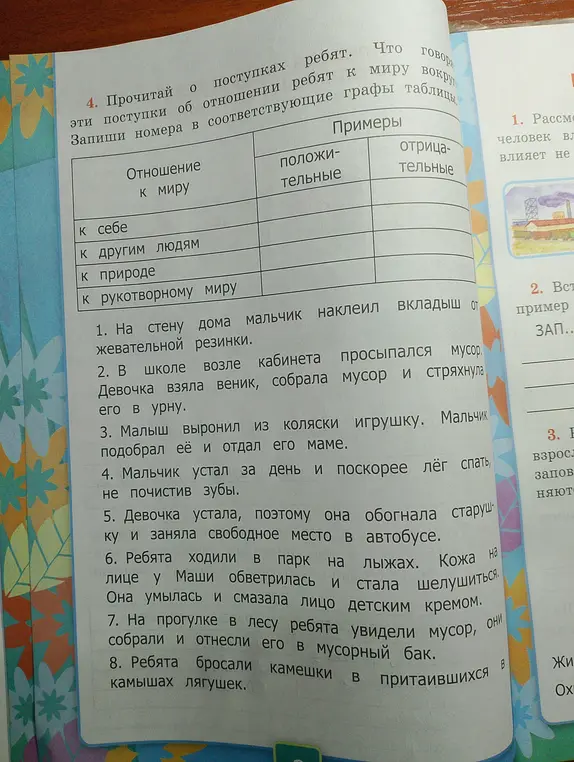 4. Прочитай о поступках ребят. Что говор
эти поступки об отношении ребят к миру вокруг
Запиши номера в соответствующие графы таблицы.
Отношение
к миру
Примеры
положи-
тельные
отрица-
тельные
к себе
к другим людям
к природе
к рукотворному миру
1. На стену дома мальчик наклеил вкладыш от
жевательной резинки.
2. В школе возле кабинета просыпался мусор.
Девочка взяла веник, собрала мусор и стряхнула
его в урну.
3. Малыш выронил из коляски игрушку. Мальчик
подобрал её и отдал его маме.
4. Мальчик устал за день и поскорее лёг спать,
не почистив зубы.
5. Девочка устала, поэтому она обогнала старуш-
ку и заняла свободное место в автобусе.
6. Ребята ходили в парк на лыжах. Кожа на
лице у Маши обветрилась и стала шелушиться.
Она умылась и смазала лицо детским кремом.
7. На прогулке в лесу ребята увидели мусор, они
собрали и отнесли его в мусорный бак.
8. Ребята бросали камешки в притаившихся в
камышах лягушек.
1. Рассм
человек вл
влияет не
2. Вст
пример
ЗАП..
3.
взросл
запов
няют
Жи
Ох